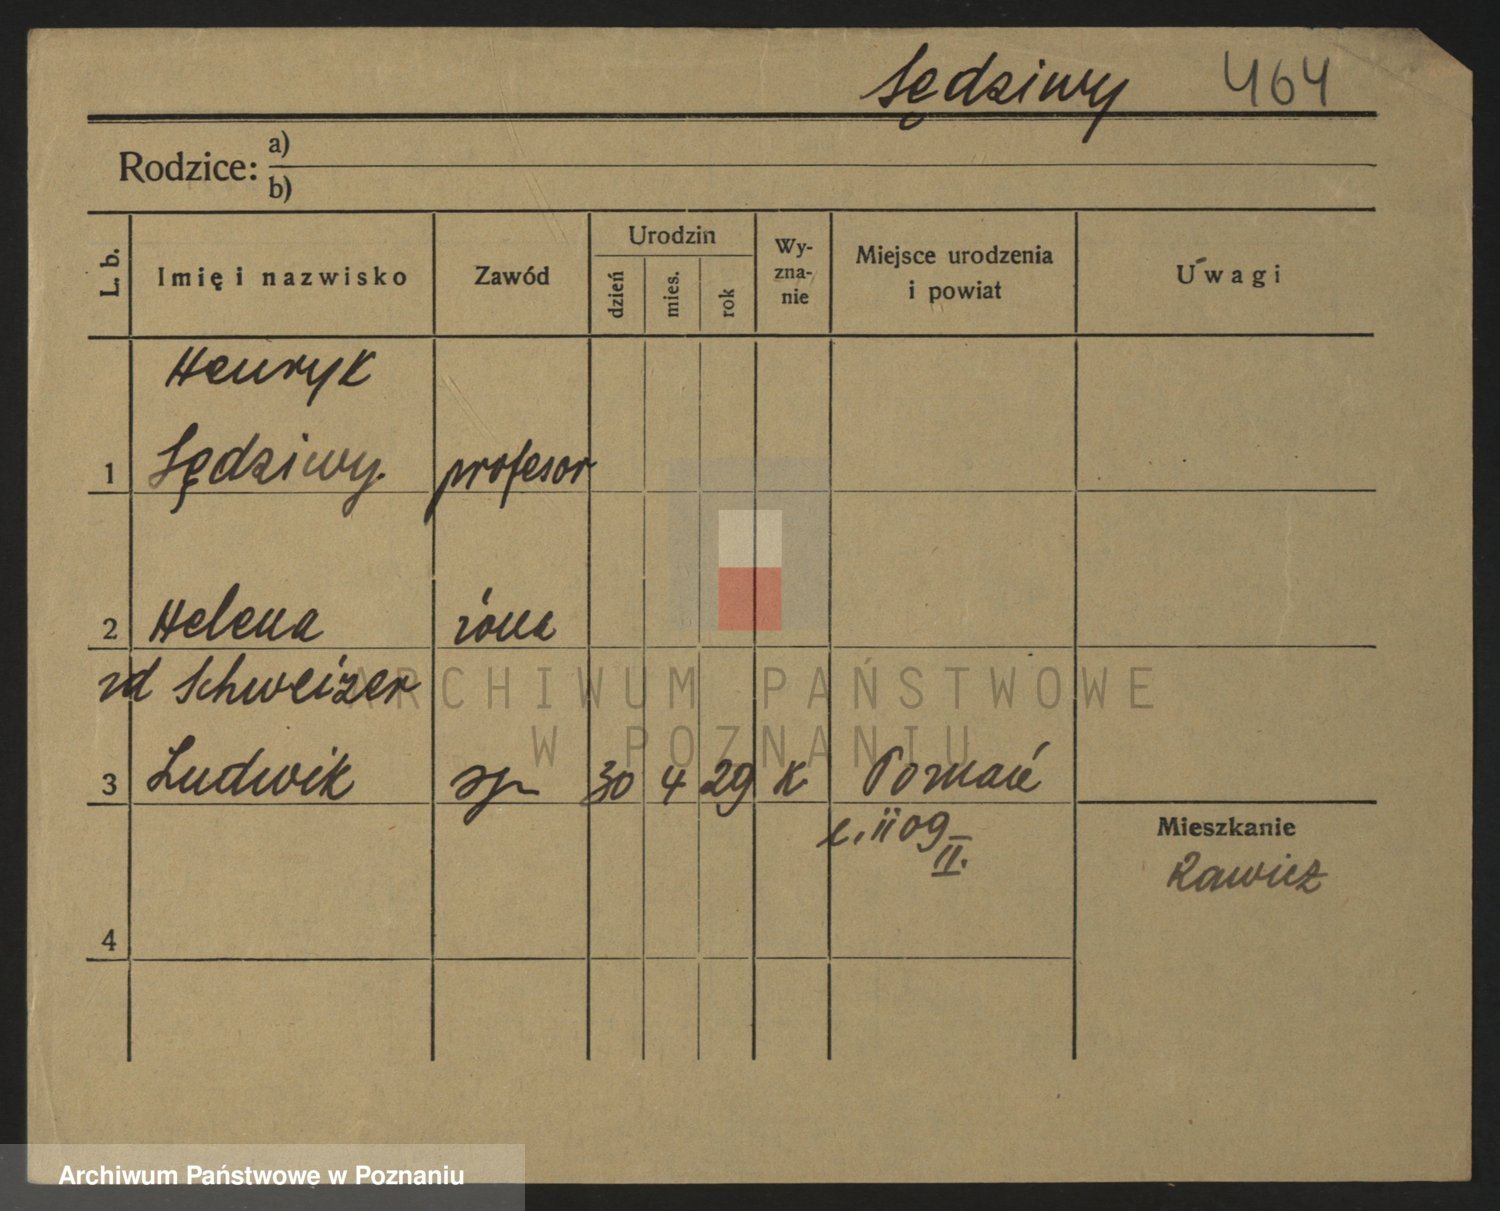 Sędziwy 464
Rodzice: a)
b)
L. b. Imię i nazwisko Zawód Urodzin dzień mies. rok Wy-zna-nie Miejsce urodzenia i powiat Uwagi
Henryk
1 Sędziwy. profesor
2 Helena żona
zd Schweizer
3 Ludwik sp 30 4 29 K Poznań
09
II.
Mieszkanie
Rawicz
4
ARCHIWUM PAŃSTWOWE
W POZNANIU
Archiwum Państwowe w Poznaniu